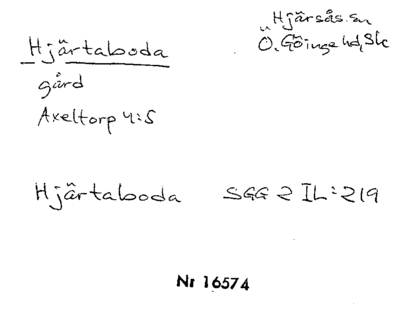 Hjärtaboda
Hjärsås sn
Ö. Göinge hd, Sk
gård
Axeltorp 4:5
Hjärtaboda SGG 2 IL:219
Nr 16574